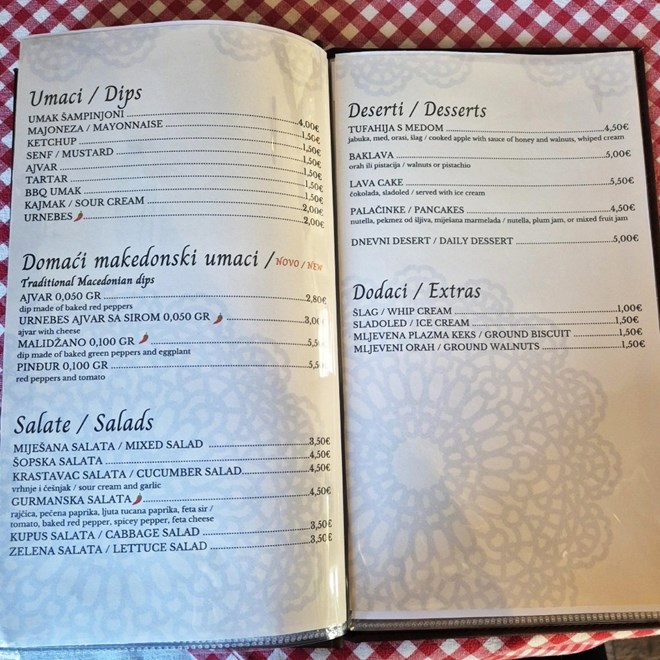 Umaci / Dips
UMAK ŠAMPINJONI 4,00€
MAJONEZA / MAYONNAISE 1,50€
KETCHUP 1,50€
SENF / MUSTARD 1,50€
AJVAR 1,50€
TARTAR 1,50€
BBQ UMAK 1,50€
KAJMAK / SOUR CREAM 2,00€
URNEBES 2,00€
Domaći makedonski umaci / NOVO / NEW
Traditional Macedonian dips
AJVAR 0,050 GR 2,80€
dip made of baked red peppers
URNEBES AJVAR SA SIROM 0,050 GR 3,00€
ajvar with cheese
MALIDŽANO 0,100 GR 5,5
dip made of baked green peppers and eggplant
PINĐUR 0,100 GR 5,5
red peppers and tomato
Salate / Salads
MIJEŠANA SALATA / MIXED SALAD 3,50€
ŠOPSKA SALATA 4,50€
KRASTAVAC SALATA / CUCUMBER SALAD 4,50€
vrhnje i češnjak / sour cream and garlic
GURMANSKA SALATA 4,50€
rajčica, pečena paprika, ljuta tucana paprika, feta sir /
tomato, baked red pepper, spicey pepper, feta cheese
KUPUS SALATA / CABBAGE SALAD 3,50€
ZELENA SALATA / LETTUCE SALAD 3,50€
Deserti / Desserts
TUFAHIJA S MEDOM 4,50€
jabuka, med, orasi, šlag / cooked apple with sauce of honey and walnuts, whiped cream
BAKLAVA 5,00€
orah ili pistacija / walnuts or pistachio
LAVA CAKE 5,50€
čokolada, sladoled / served with ice cream
PALAČINKE / PANCAKES 4,50€
nutella, pekmez od šljiva, miješana marmelada / nutella, plum jam, or mixed fruit jam
DNEVNI DESERT / DAILY DESSERT 5,00€
Dodaci / Extras
ŠLAG / WHIP CREAM 1,00€
SLADOLED / ICE CREAM 1,50€
MLJEVENA PLAZMA KEKS / GROUND BISCUIT 1,50€
MLJEVENI ORAH / GROUND WALNUTS 1,50€